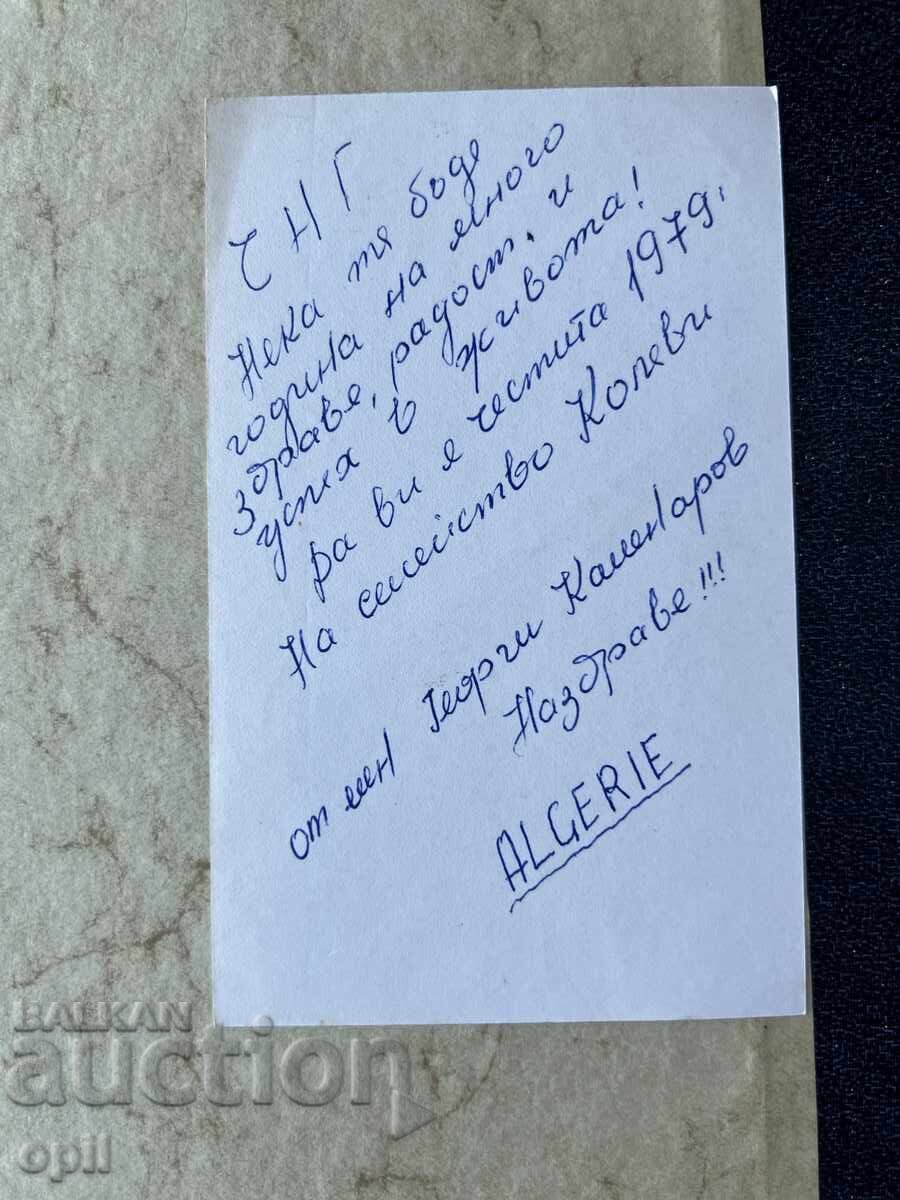 ЧНГ
Нека тя бъде
година на много
здраве, радост, и
успех в живота!
Да ви е честита 1979г.
На семейство Колеви
от мен Георги Каменаров
Наздраве!!!
ALGERIE
BALKAN
auction
opil